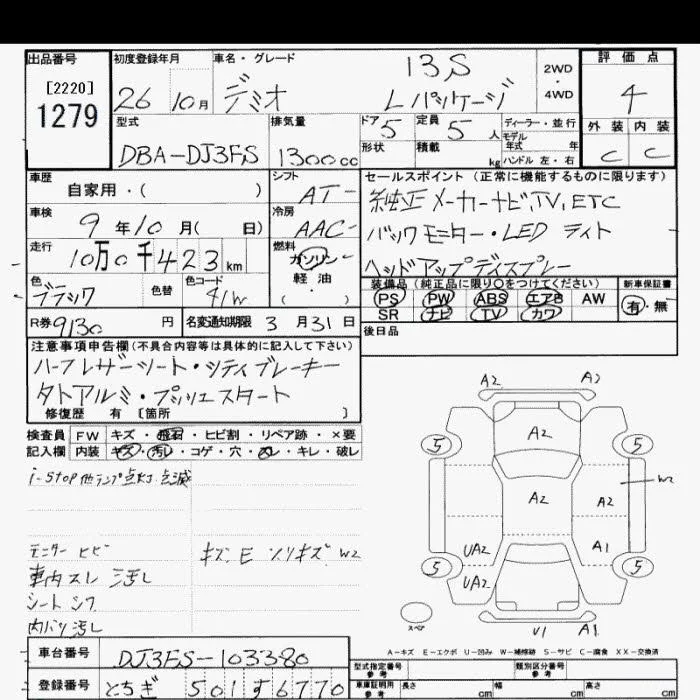 出品番号 初度登録年月 車名・グレード 13S 2WD・4WD 評価点
[2220] 26 10月 デミオ Lパッケージ 4
1279 型式 排気量 ドア 5 定員 5人 ディーラー・並行 外装 内装
DBA-DJ3FS 1300cc 形状 積載 kg モデル年式 年 ハンドル 左・右 C C
車歴 自家用・( ) シフト AT- セールスポイント(正常に機能するものに限ります)
車検 9年10月( 日) 冷房 AAC- 純正メーカーナビ,TV,ETC
走行 10万0千423km 燃料 ガソリン・軽油・( ) バックモニター・LEDライト
ヘッドアップディスプレー
色 ブラック 色替 色コード 41W 装備品(純正品に限り○をつけてください) 新車保証書
PS PW ABS エアB AW 有・無
SR ナビ TV カワ
R券 9130円 名変通知期限 3月31日 後日品
注意事項申告欄(不具合内容等は具体的に記入して下さい)
ハーフレザーシート・シティブレーキ
タトアルミ・プッシュスタート
修復歴 有 [箇所 ]
検査員 FW キズ・飛石・ヒビ割・リペア跡・×要
記入欄 内装 キズ・汚レ・コゲ・穴・スレ・キレ・破レ
i-stop他ランプ点灯 点滅
モニター ヒビ キズ、E ソリキズ W2
車内スレ 汚し
シート シワ
内バリ汚し
A2 A2
A2
5 5
W2
A2 A2
UA2 A1
5 5
UA2
スペア
U1 A1
A-キズ E-エクボ U-凹み W-補修跡 S-サビ C-腐食 XX-交換済
車台番号 DJ3FS-103380 型式指定番号 参考 類別区分番号 参考
登録番号 とちぎ 501す6770 車庫証明用 参考 長さ cm 幅 cm 高さ cm